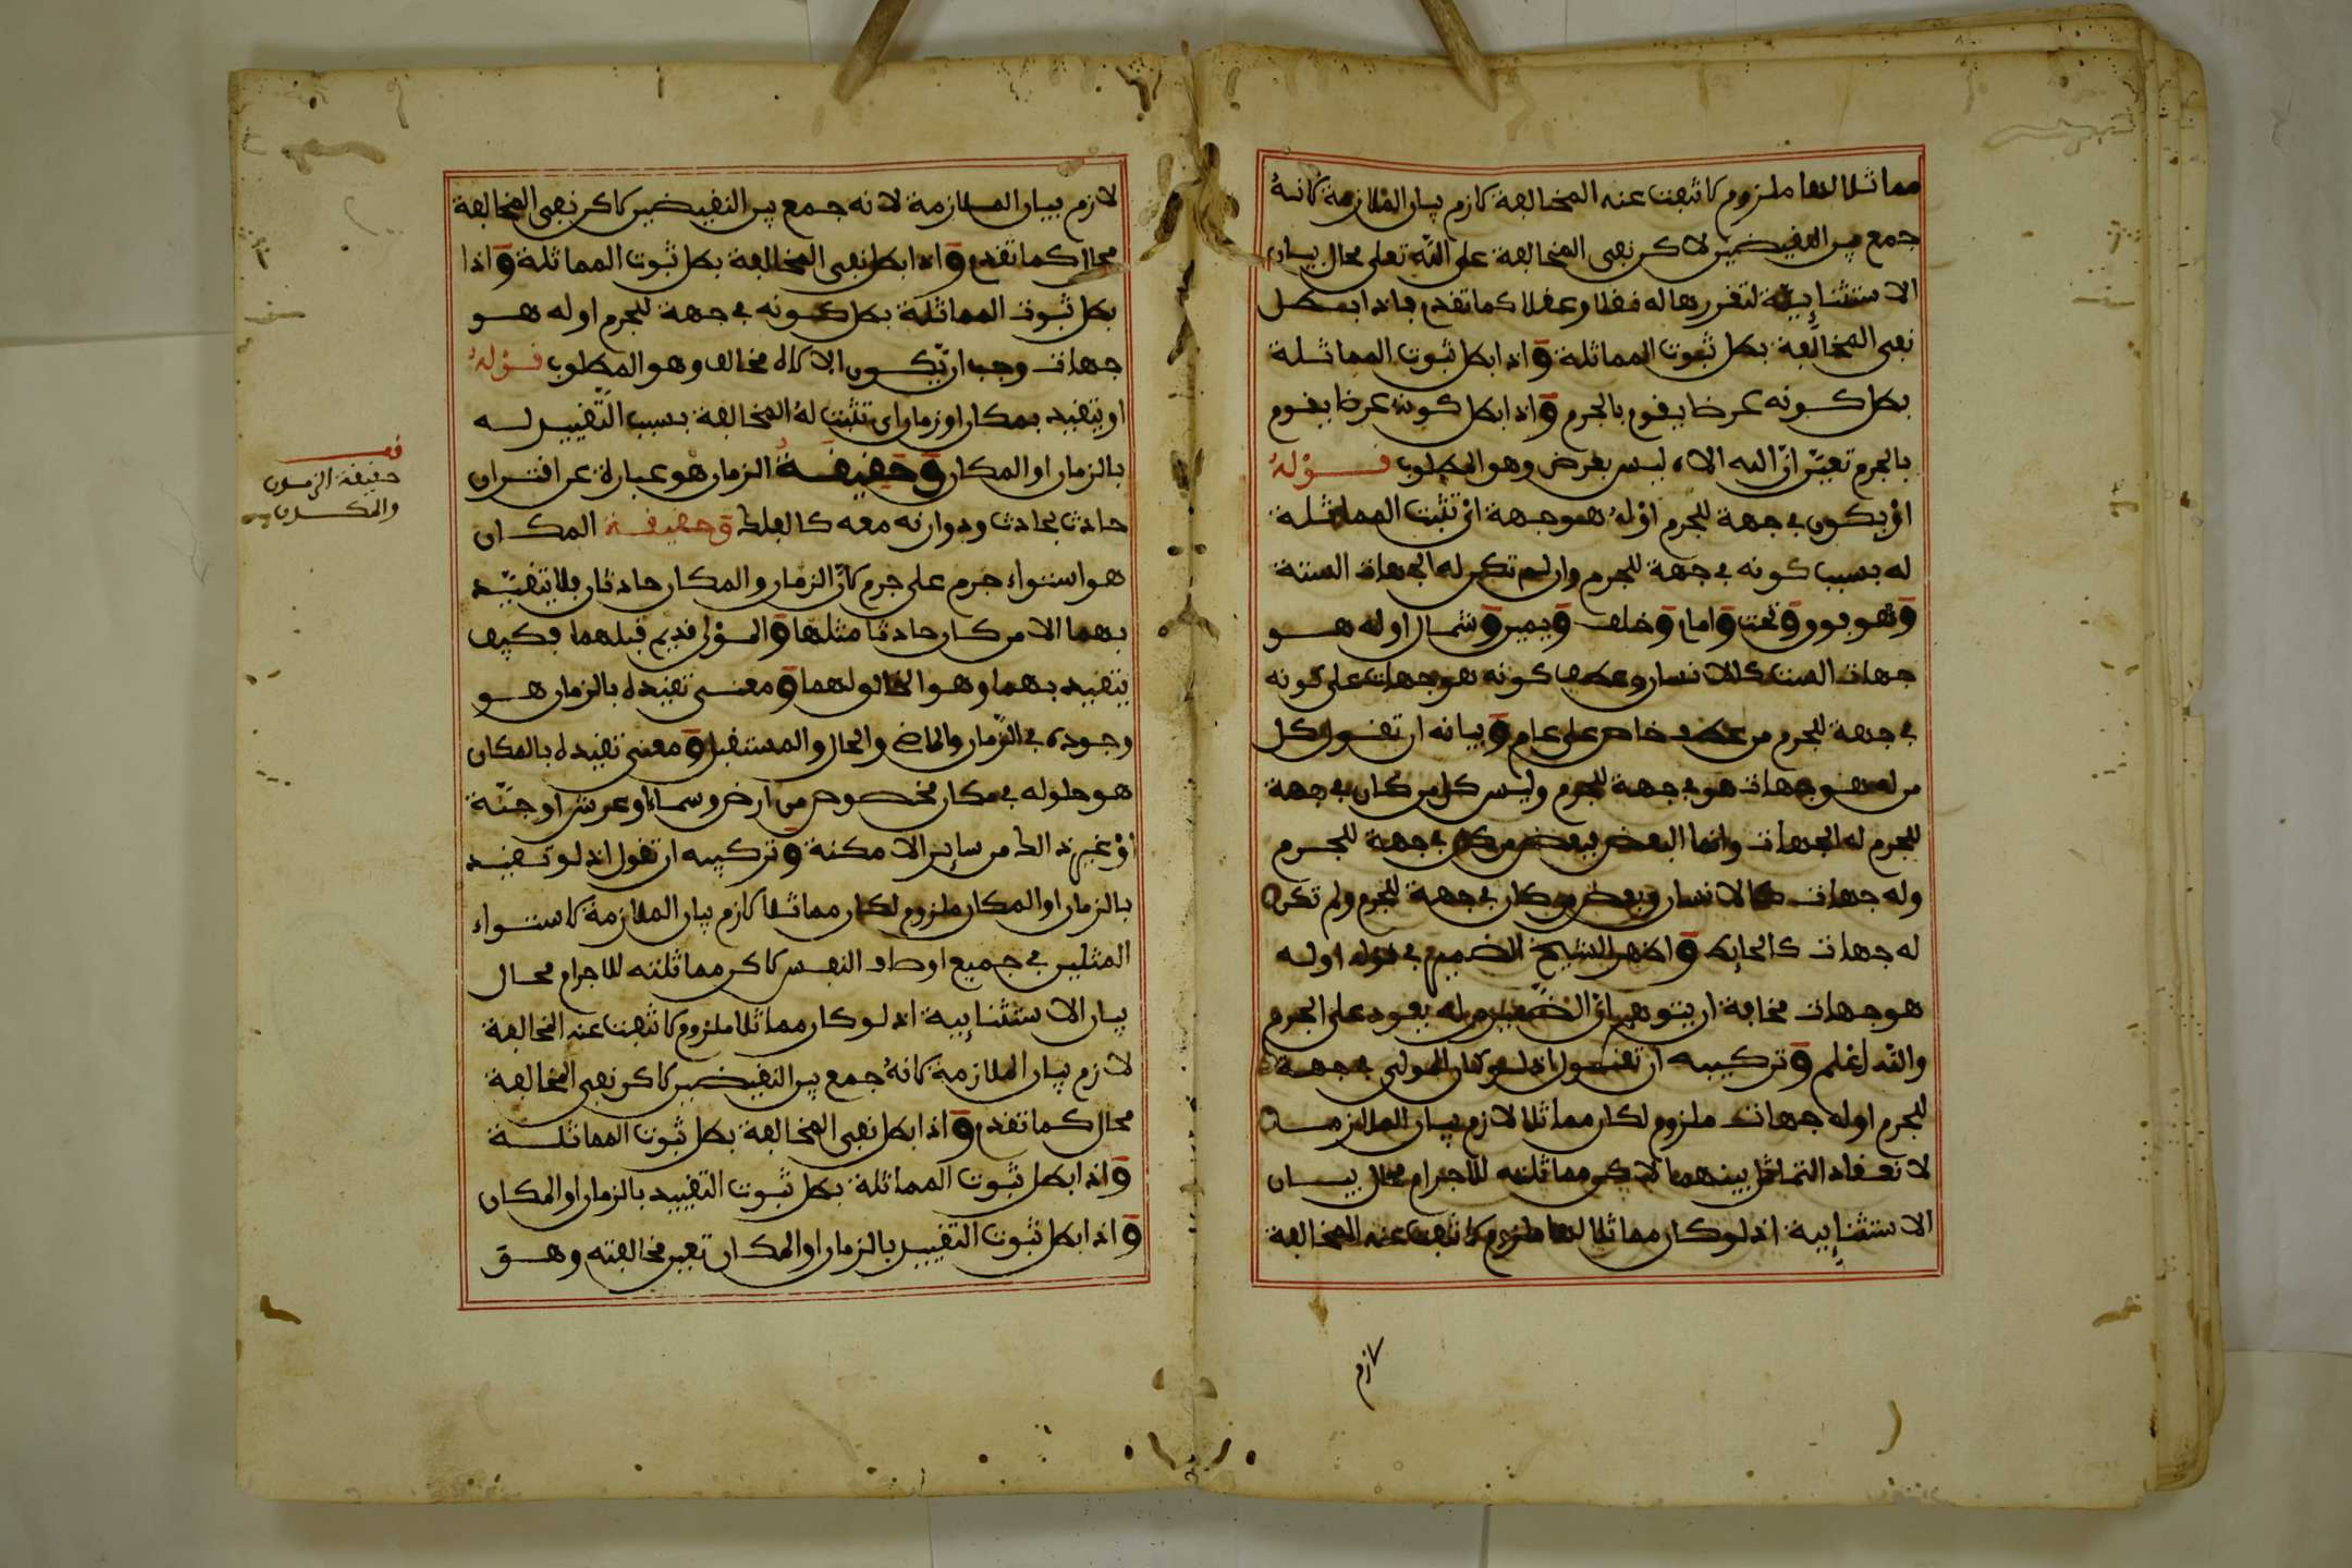 مماثلا لها ملزوم لانتفت عنه المخالفة لازم بيان الملازمة لانه
جمع بين النقيضين لاكن نفي المخالفة على الله تعلى محال بيان
الاستثنايية لتقررها له نقلا وعقلا كما تقدم فاذا بطل
نفي المخالفة بطل ثبوت المماثلة واذا بطل ثبوت المماثلة
بطل كونه عرضا يقوم بالجرم واذا بطل كونه عرضا يقوم
بالجرم تعين ان الله الاه ليس بعرض وهو المطلوب قوله
او يكون في جهة للجرم او له هو جهة اي تثبت المماثلة
له بسبب كونه في جهة للجرم وان لم تكن له الجهات الستة
وهو فوق وتحت وامام وخلف ويمين وشمال او له هو
جهات الست كالانسان وعطف كونه هو جهات على كونه
في جهة للجرم من عطف خاص على عام وبيانه ان تقول كل
من له هو جهات هو في جهة للجرم وليس كل من كان في جهة
للجرم له الجهات وانما البعض فبعض من كان في جهة للجرم
وله جهات كالانسان وبعض من كان في جهة للجرم ولم تكن
له جهات كالحايط واظهر الشيخ الضمير في قوله او له
هو جهات مخافة ان يتوهم ان الضمير من له يعود على الجرم
والله اعلم وتركيبه ان تقول اذ لو كان المولى في جهة
للجرم او له جهات ملزوم لكان مماثلا لازم بيان الملازمة
لانعقاد التماثل بينهما لاكن مماثلته للاجرام محال بيان
الاستثنايية اذ لو كان مماثلا لها ملزوم لانتفت عنه المخالفة
لازم
لازم بيان الملازمة لانه جمع بين النقيضين لاكن نفي المخالفة
محال كما تقدم واذا بطل نفي المخالفة بطل ثبوت المماثلة واذا
بطل ثبوت المماثلة بطل كونه في جهة للجرم او له هو
جهات وجب ان يكون الالاه مخالف وهو المطلوب قوله
او يتقيد بمكان او زمان اي تثبت له المخالفة بسبب التقييد له
بالزمان او المكان وحقيقة الزمان هو عبارة عن اقتران
حادث بحادث ودوارنه معه كالفلك وحقيقة المكان
هو استواء جرم على جرم لان الزمان والمكان حادثان فلا يتقيد
بهما الا من كان حادثا مثلها والمولى قديم قبلهما فكيف
يتقيد بهما وهو الخالق لهما ومعنى تقيده بالزمان هو
وجوده في الزمان والماضي والحال والمستقبل ومعنى تقيده بالمكان
هو حلوله في مكان مخصوص من ارض وسماء او عرش او جنة
او غير ذالك من ساير الامكنة وتركيبه ان تقول اذ لو تقيد
بالزمان او المكان ملزوم لكان مماثلا لازم بيان الملازمة لاستواء
المثلين في جميع اوصاف النفس لاكن مماثلته للاجرام محال
بيان الاستثنايية اذ لو كان مماثلا ملزوم لانتفت عنه المخالفة
لازم بيان الملازمة لانه جمع بين النقيضين لاكن نفي المخالفة
محال كما تقدم واذا بطل نفي المخالفة بطل ثبوت المماثلة
واذا بطل ثبوت المماثلة بطل ثبوت التقييد بالزمان او المكان
واذا بطل ثبوت التقييد بالزمان او المكان تعين مخالفته وهو
قف
حقيقة الزمان
والمكان